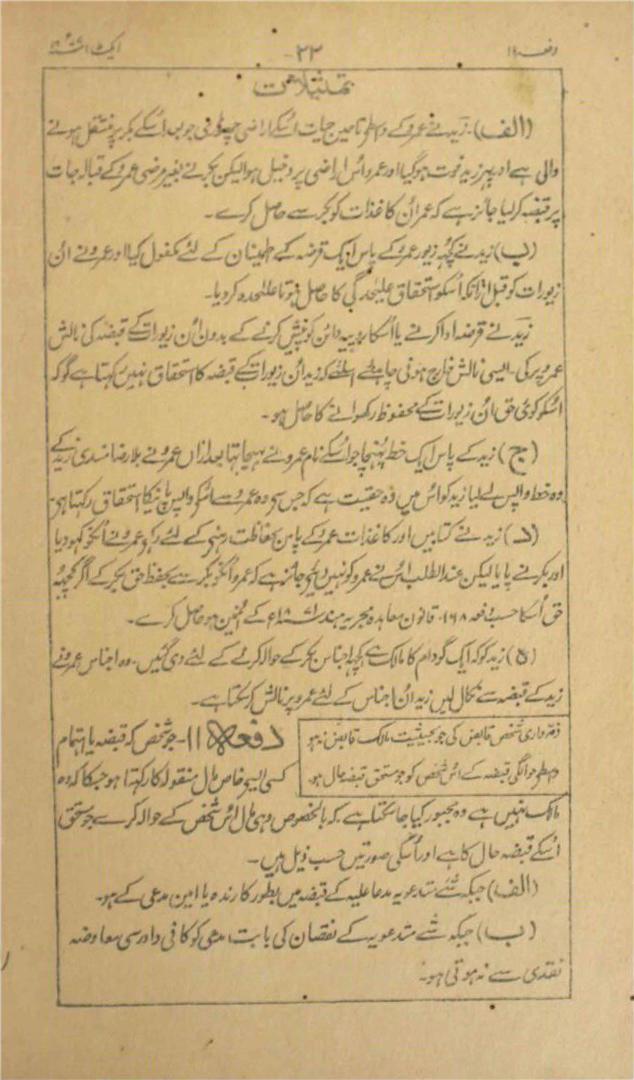 دفعہ ۱۰
-۲۲-
ایکٹ
تمثیلات
(الف)- زید نے عمرو کے واسطے تاحین حیات اُسکے اراضی چھوڑی جو بعد اُسکے بکر پر منتقل ہونے
والی ہے اور پھر زید فوت ہوگیا اور عمرو اُس اراضی پر دخیل ہوا لیکن بکر نے بغیر مرضی عمرو کے قبالہ جات
پر قبضہ کرلیا جائز ہے کہ عمرو اُن کاغذات کو بکر سے حاصل کرے۔
(ب) زید نے کچھ زیور عمرو کے پاس ایک قرضہ کے اطمینان کے لئے مکفول کیا اور عمرو نے اُن
زیورات کو قبل ازانکہ اُسکو استحقاق علیحدگی کا حاصل ہوتا علیحدہ کردیا۔
زید نے قرضہ ادا کرنے یا اُسکا روپیہ دائن کو پیش کرنے کے بدون اُن زیورات کے قبضہ کی نالش
عمرو پر کی۔ ایسی نالش خارج ہونی چاہئے اسلئے کہ زید اُن زیورات کے قبضہ کا استحقاق نہیں رکھتا ہے گو کہ
اُسکو کوئی حق اُن زیورات کے محفوظ رکھوانے کا حاصل ہو۔
(ج) زید کے پاس ایک خط پہنچا جو اُسکے نام عمرو نے بھیجا تھا بعدازاں عمرو نے بلا رضامندی زید کے
وہ خط واپس لے لیا زید کو اُس میں وہ حقیت ہے کہ جس سے وہ عمرو سے اُسکو واپس پانیکا استحقاق رکھتا ہے
(د) زید نے کتابیں اور کاغذات عمرو کے پاس بحفاظت رہنے کے لئے رکھے عمرو نے اُنکو کھو دیا
اور بکر نے پایا لیکن عندالطلب اُس نے عمرو کو نہیں دئے جائز ہے کہ عمرو اُنکو بکر سے بحفظ حق بکر کے اگر کچھ
حق اُسکا حسب دفعہ ۱۶۸- قانون معاہدہ مجریہ ہند ۱۸۷۲ء کے ہو حاصل کرے۔
(ہ) زید کو کہ ایک گودام کا مالک ہے کچھ اجناس بکر کے حوالہ کرنے کے لئے دی گئیں۔ وہ اجناس عمرو نے
زید کے قبضہ سے نکال لیں زید اُن اجناس کے لئے عمرو پر نالش کرسکتا ہے۔
ذمہ داری شخص قابض کی جو بحیثیت مالک قابض نہ ہو
واسطے حوالگی قبضہ کے اُس شخص کو جو مستحق قبضہ حال ہو۔
دفعہ ۱۱- جو شخص کہ قبضہ یا اہتمام
کسی ایسے خاص مال منقولہ کا رکھتا ہو جسکا کہ وہ
مالک نہیں ہے وہ مجبور کیا جاسکتا ہے کہ بالخصوص وہی مال اُس شخص کے حوالہ کرے جو مستحق
اُسکے قبضہ حال کا ہے اور اُسکی صورتیں حسب ذیل ہیں۔
(الف) جبکہ شئے متدعویہ مدعا علیہ کے قبضہ میں بطور کارندہ یا امین مدعی کے ہو۔
(ب) جبکہ شئے متدعویہ کے نقصان کی بابت مدعی کو کافی دادرسی معاوضہ
نقدی سے نہ ہوتی ہو۔